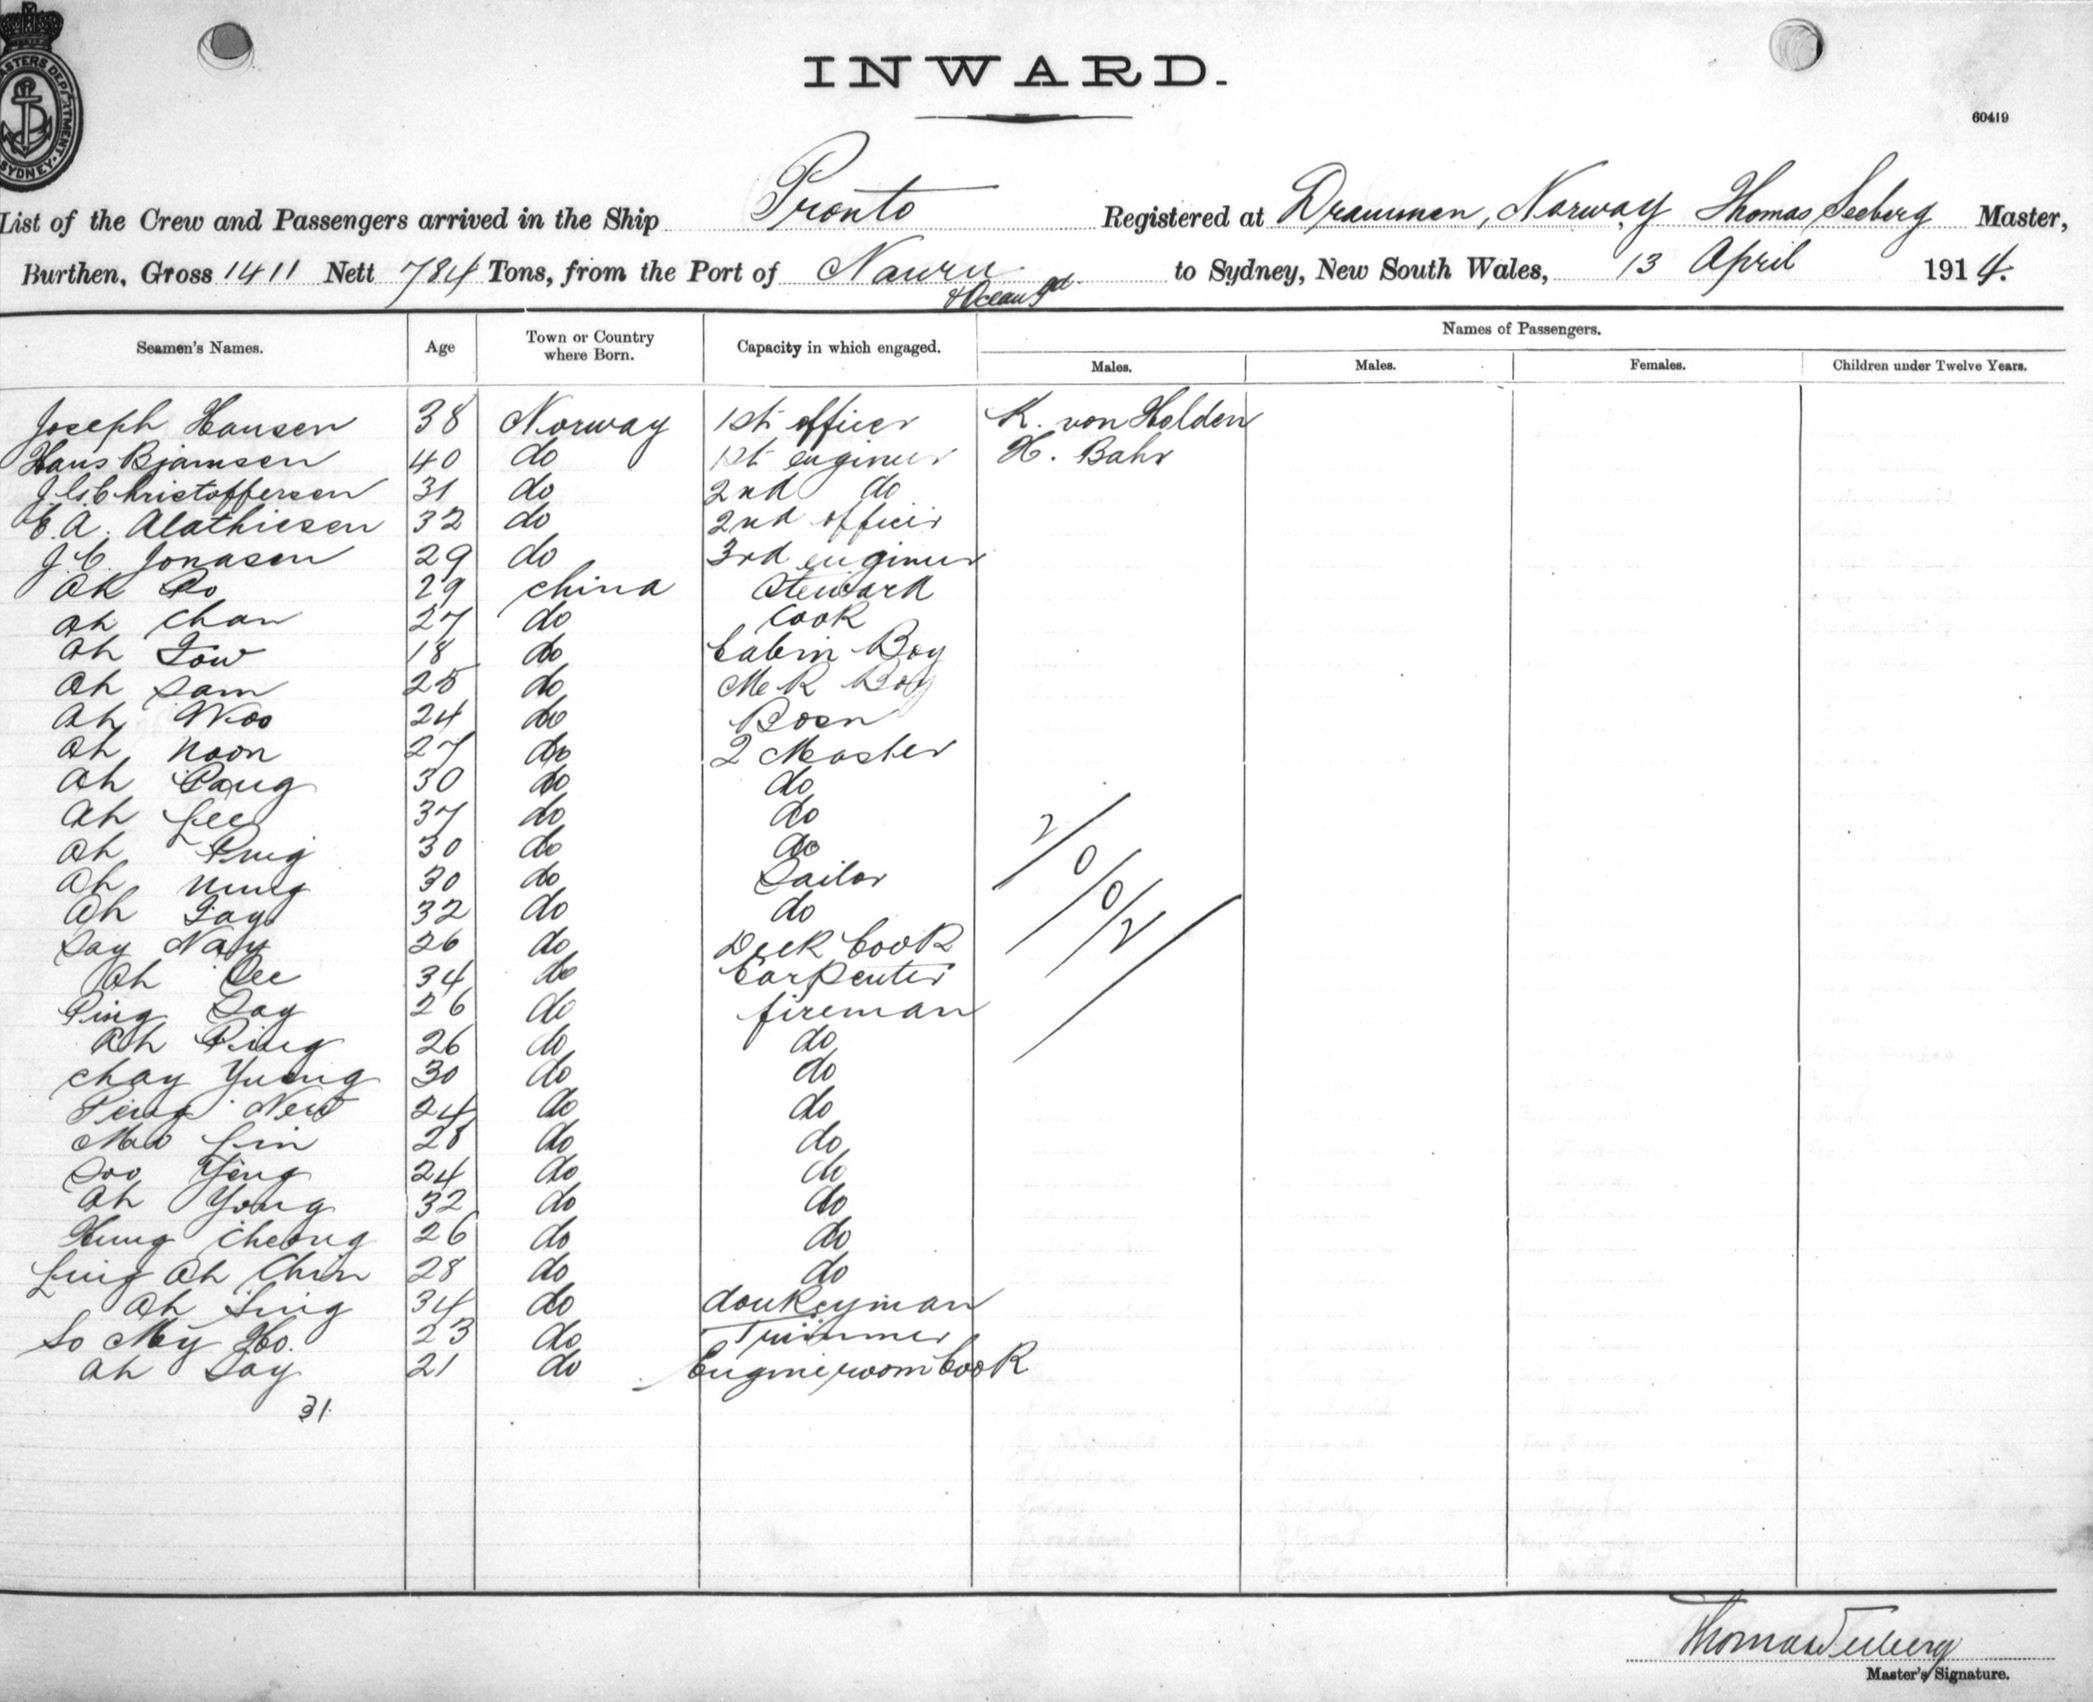 INWARD.
60419
MASTERS DEPARTMENT SYDNEY
List of the Crew and Passengers arrived in the Ship Pronto Registered at Drammen, Norway Thomas Seeberg Master,
Burthen, Gross 1411 Nett 784 Tons, from the Port of Nauru to Sydney, New South Wales, 13 April 1914.
& Ocean Id.
Names of Passengers.
Seamen's Names. Age Town or Country where Born. Capacity in which engaged. Males. Males. Females. Children under Twelve Years.
Joseph Hansen 38 Norway 1st officer K. von Holden
Hans Bjarnsen 40 do 1st engineer H. Bahr
Christoffersen 31 do 2nd do
E. A. Mathiesen 32 do 2nd officer
J. C. Jonasen 29 do 3rd engineer
Ah 29 China Steward
Ah Chan 27 do Cook
Ah Tow 18 do Cabin Boy
Ah Sam 25 do Boy
Ah Woo 24 do Bosn
Ah Noon 27 do 2 Master
Ah 30 do do
Ah Lee 37 do do
Ah 30 do do
Ah Nung 30 do Sailor
Ah 32 do do
Say Nay 26 do Deck Cook
Ah 34 do Carpenter
Ping Say 26 do fireman
Ah Ping 26 do do
Chay Yueng 30 do do
24 do do
Mao Lin 28 do do
Soo Ying 24 do do
Ah Yong 32 do do
Hung Cheong 26 do do
Ling Ah Chin 28 do do
Ah Sing 34 do donkeyman
So My Ho. 23 do Trimmer
Ah Say 21 do Engineroom Cook
31
2/0/0/2
Thomas Seeberg
Master's Signature.